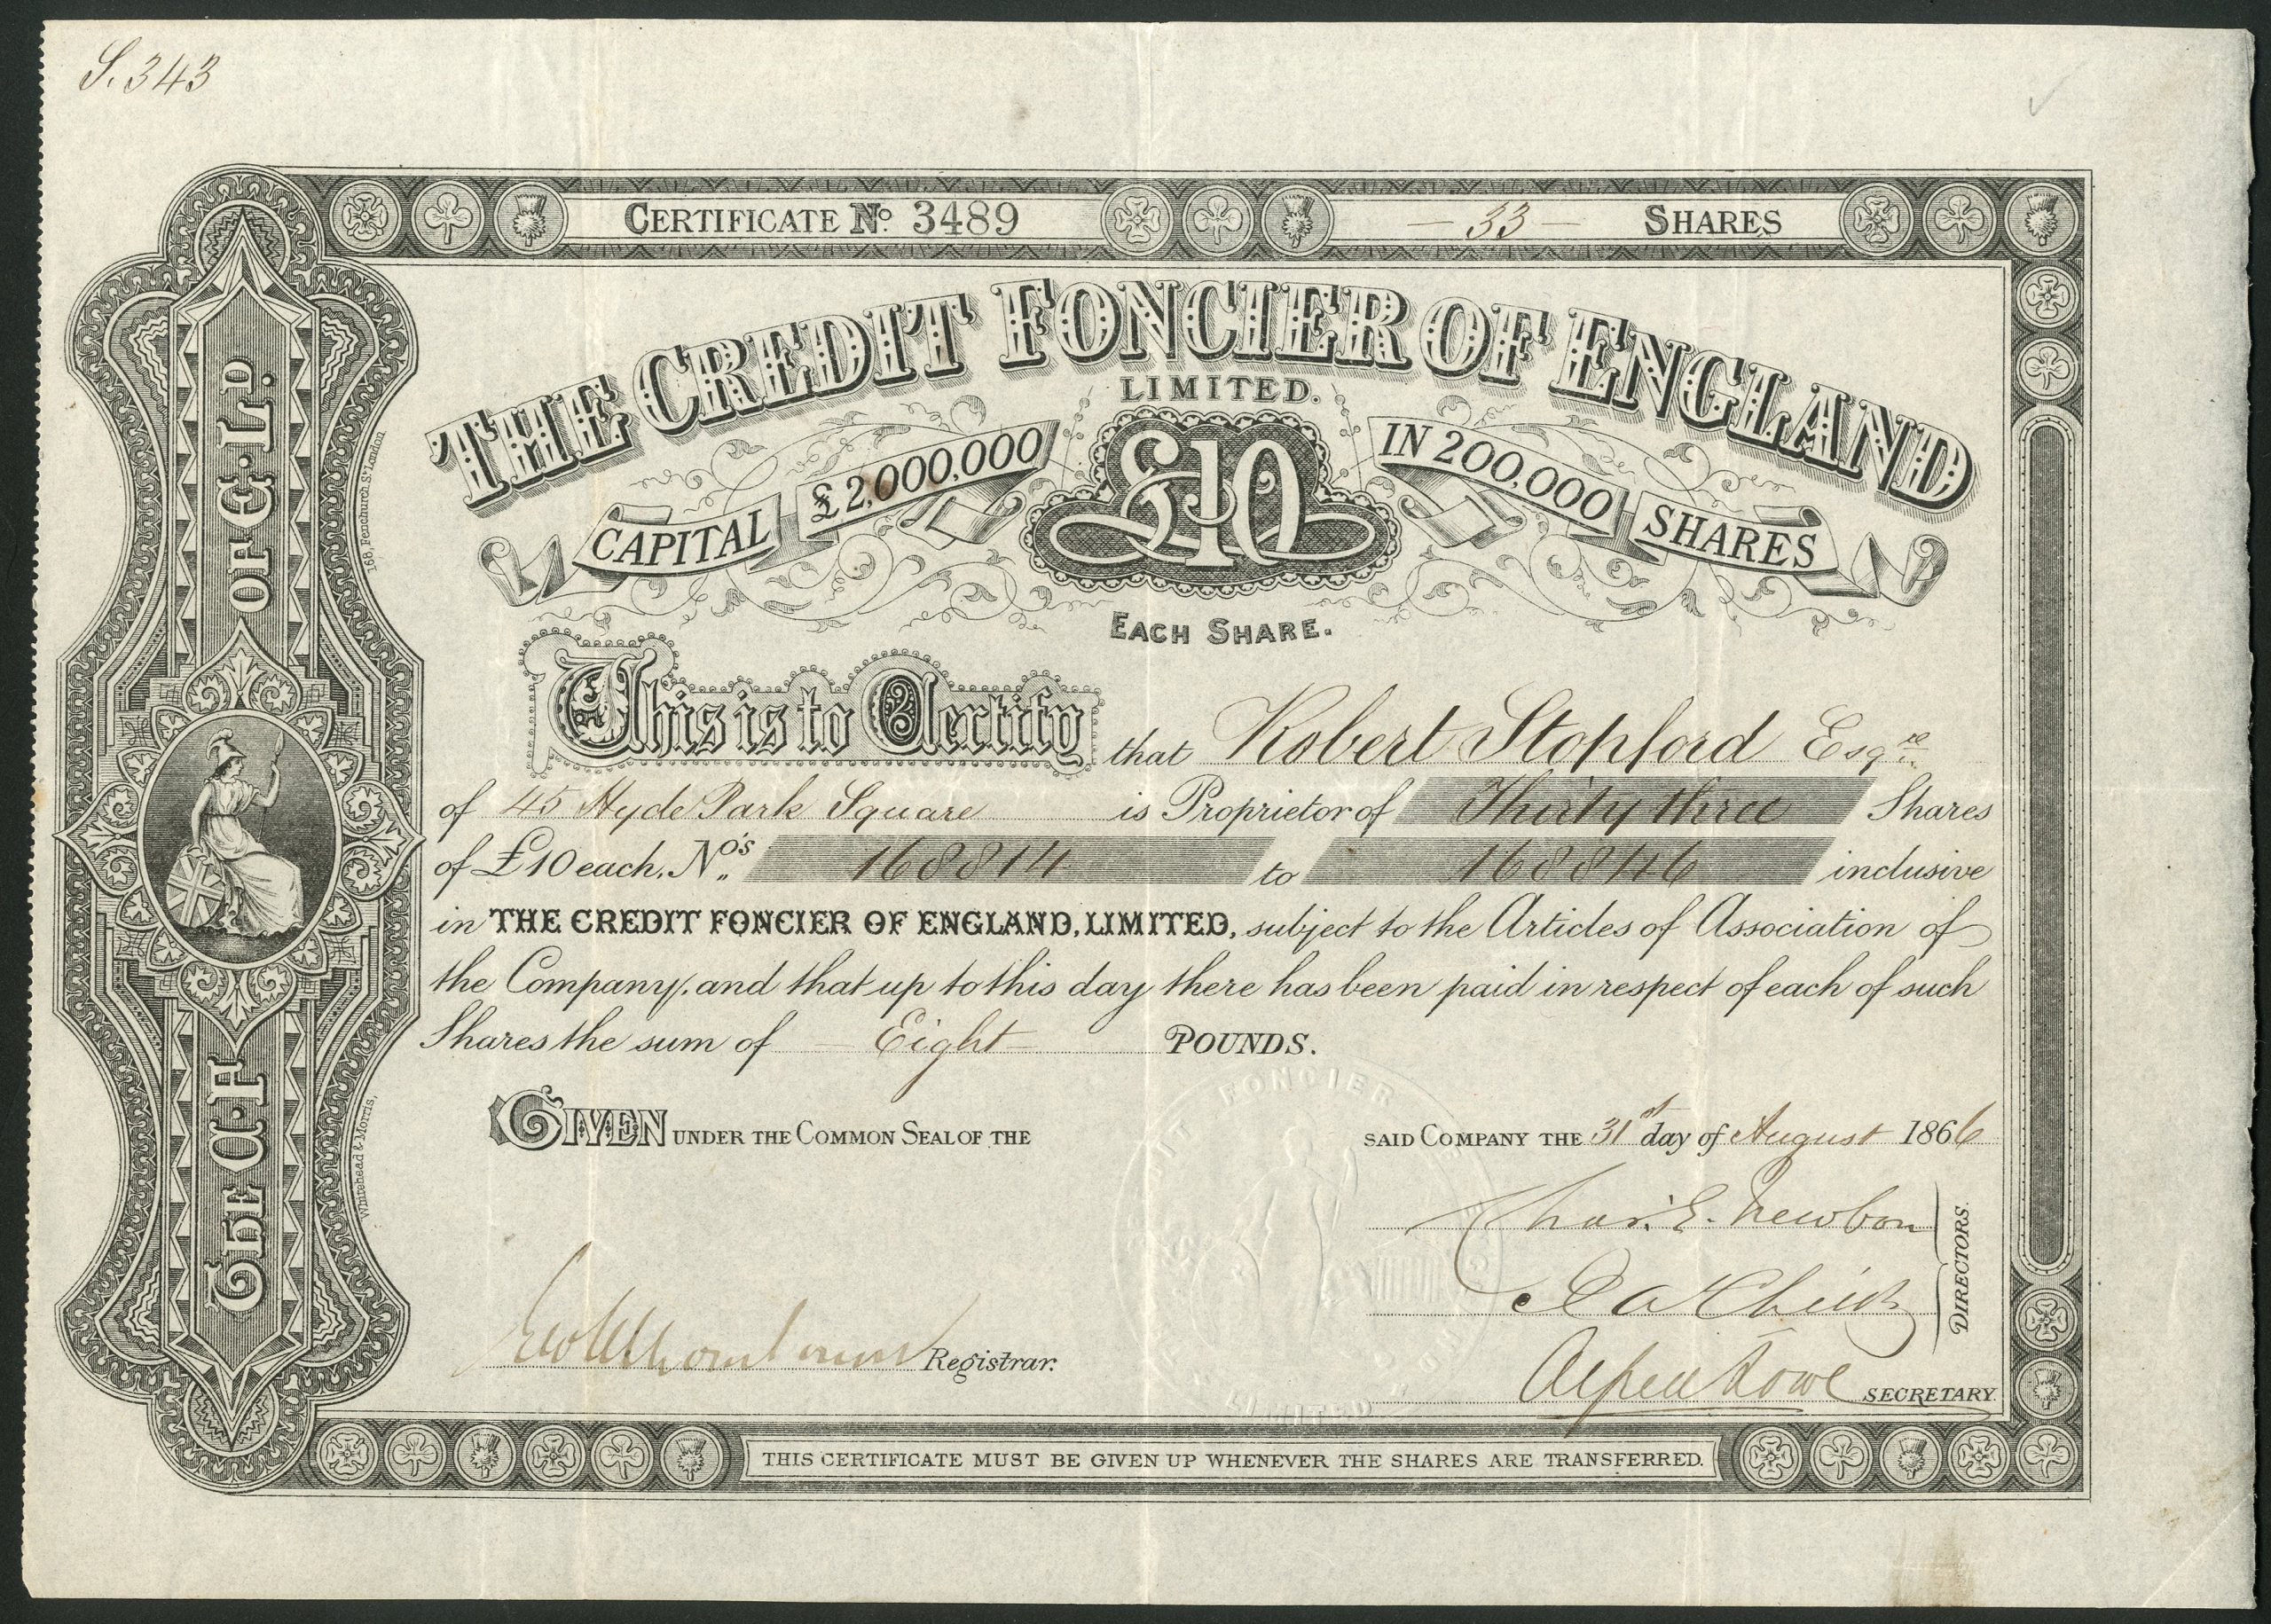 S. 343
CERTIFICATE No. 3489
— 33 — SHARES
THE CREDIT FONCIER OF ENGLAND
LIMITED.
CAPITAL £2,000,000
£10
IN 200,000 SHARES
EACH SHARE.
This is to Certify that Robert Stopford Esqre
of 45 Hyde Park Square is Proprietor of Thirty three Shares
of £10 each, Nos. 168814 to 168846 inclusive
in THE CREDIT FONCIER OF ENGLAND, LIMITED, subject to the Articles of Association of
the Company, and that up to this day there has been paid in respect of each of such
Shares the sum of — Eight — POUNDS.
GIVEN UNDER THE COMMON SEAL OF THE SAID COMPANY THE 31st day of August 1866
Chas. E. Newbon
DIRECTORS.
Registrar.
Alfred Lowe SECRETARY.
THIS CERTIFICATE MUST BE GIVEN UP WHENEVER THE SHARES ARE TRANSFERRED.
THE C.F. OF E. LD.
Whitehead & Morris,
168, Fenchurch St. London
FONCIER
LIMITED